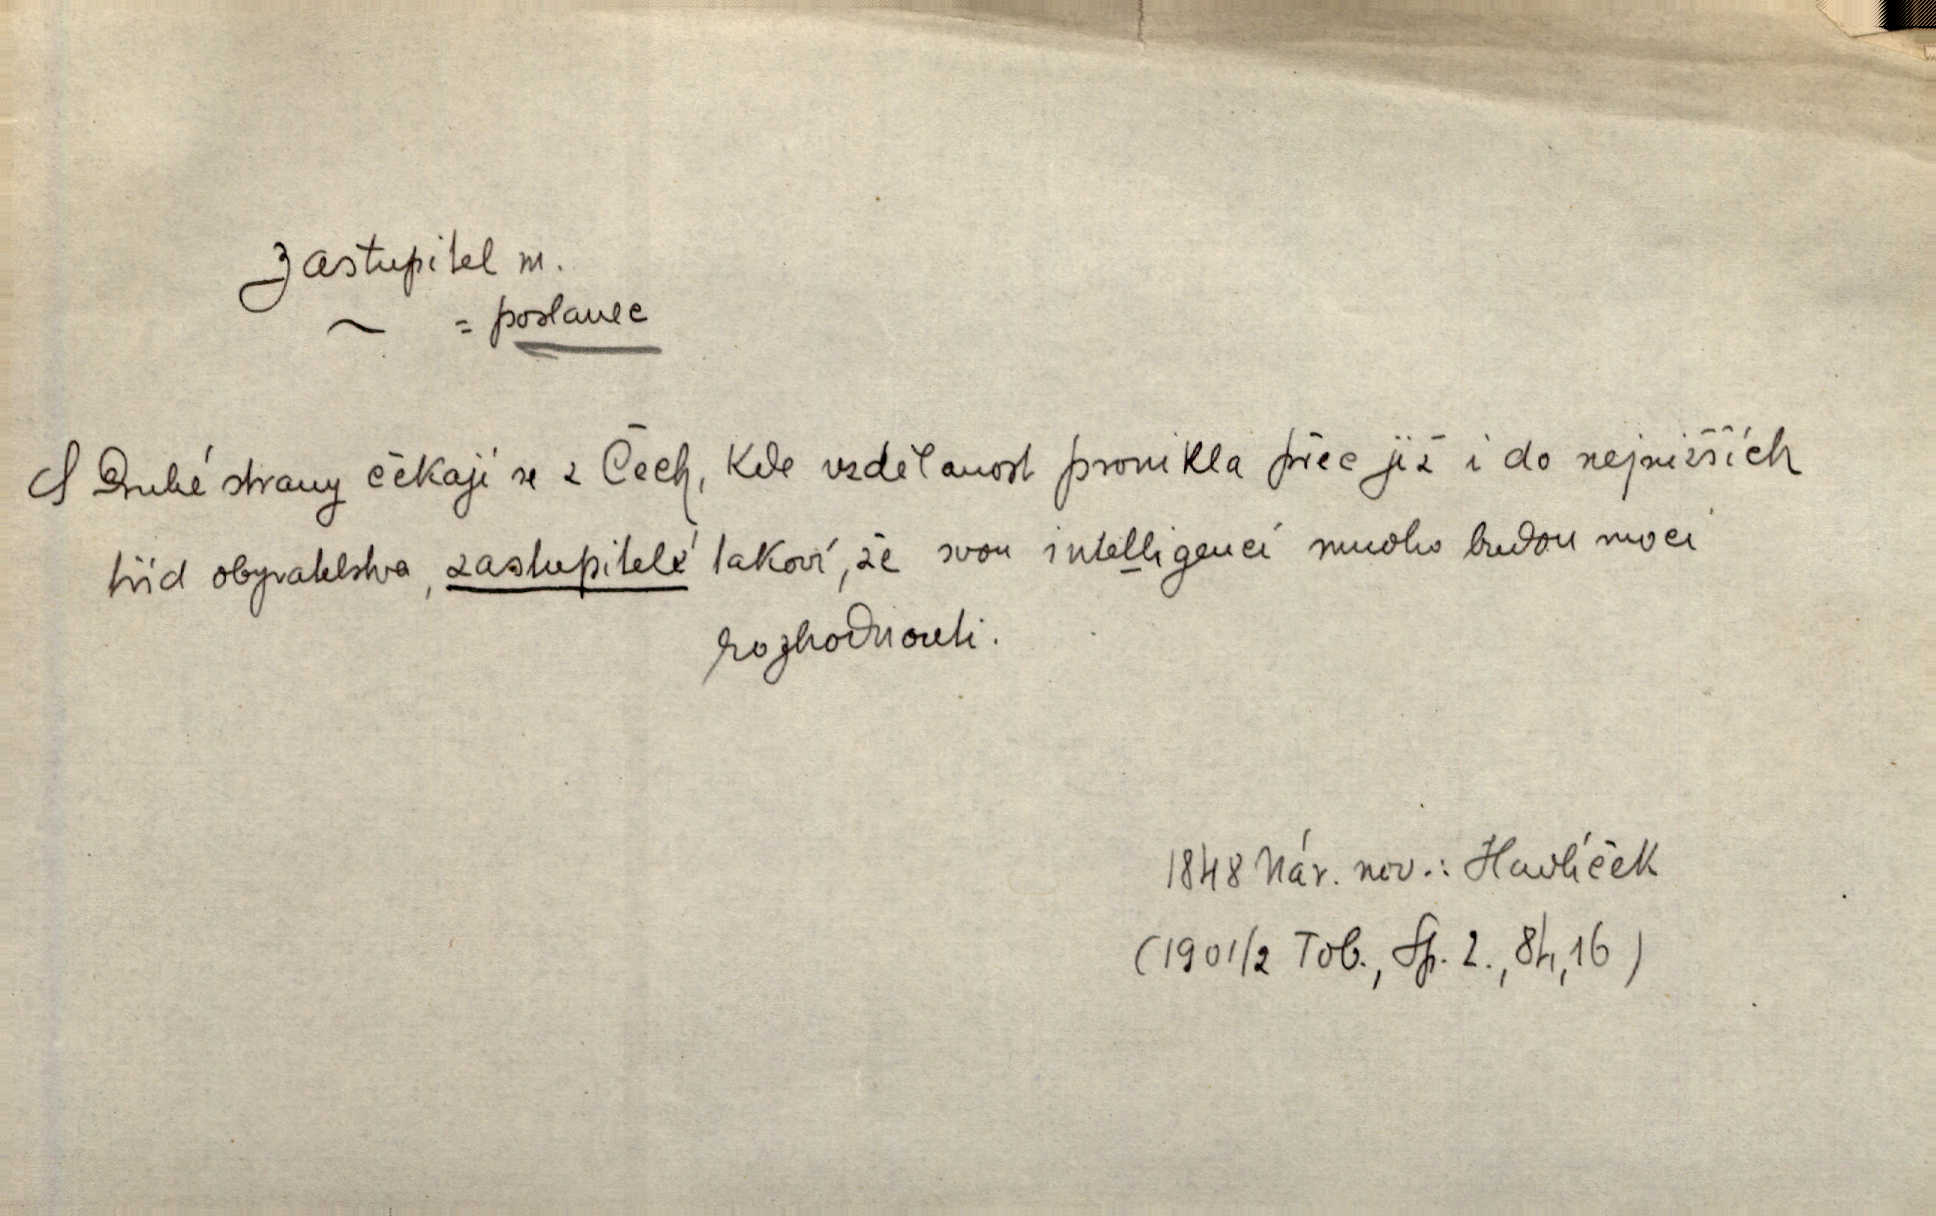 Zastupitel m.
~ = poslanec
S Druhé strany čékají se z Čech, kde vzdělanost pronikla přec již i do nejnižších
tříd obyvatelstva, zastupitelé takoví, že svou intelligencí mnoho budou moci
rozhodnouti.
1848 Nár. nov.: Havlíček
(1901/2 Tob., Sp. 2., 84, 16)